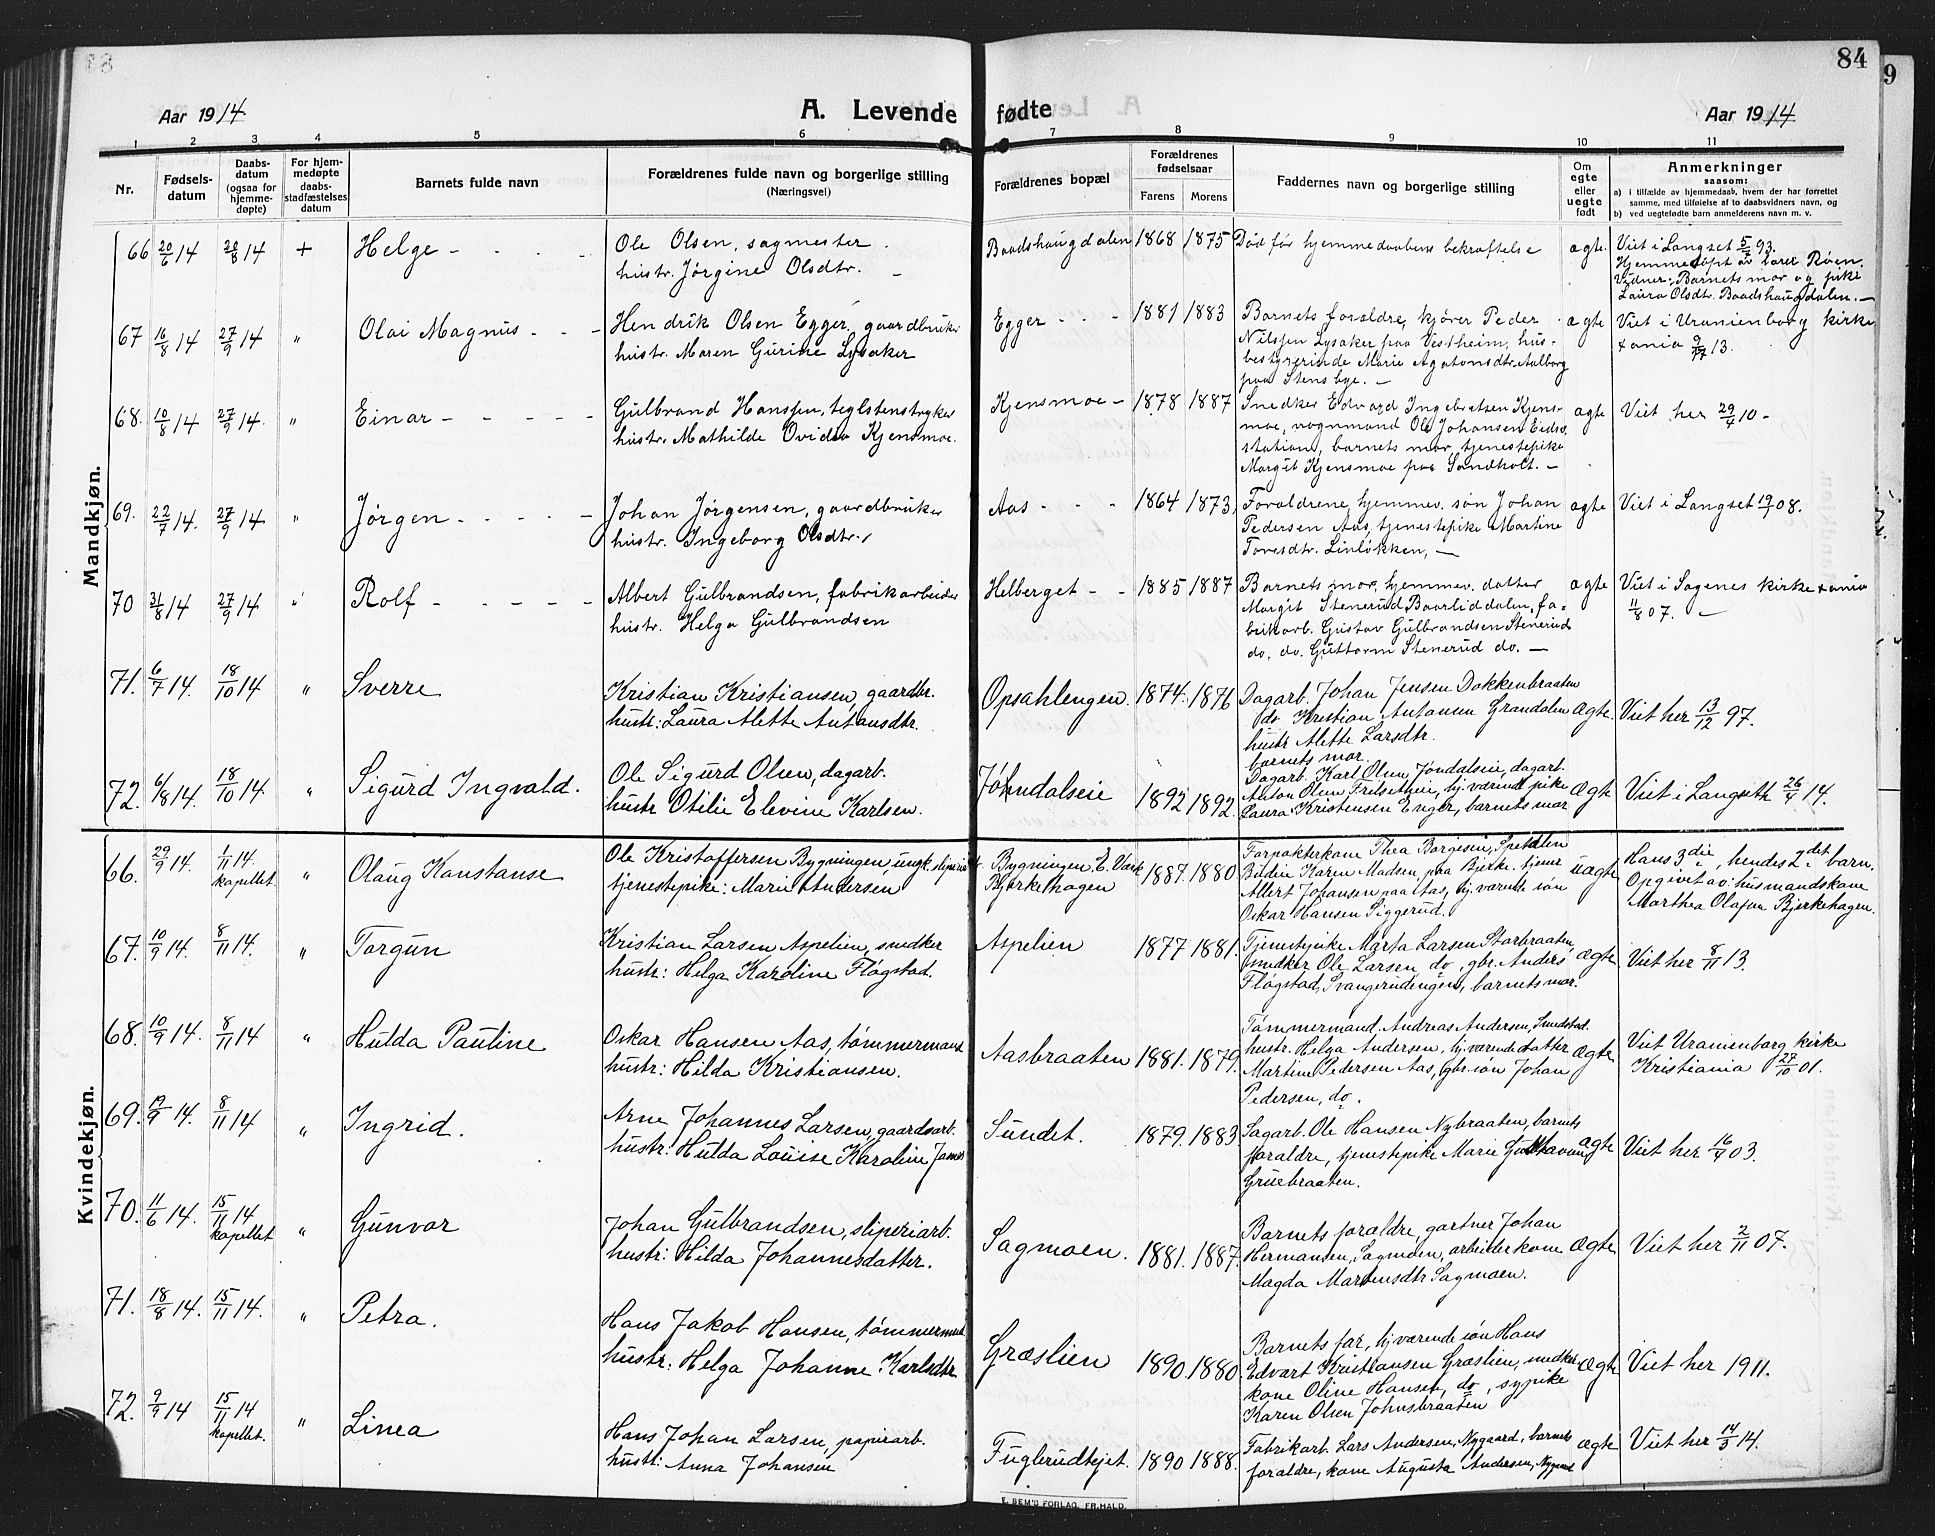 84
9
Aar 1914 A. Levende fødte Aar 1914
1 2 3 4 5 6 7 8 9 10 11
Nr. Fødsels-datum Daabs-datum (ogsaa for hjemme-døpte) For hjem-medøpte daabs-stadfæstelses datum Barnets fulde navn Forældrenes fulde navn og borgerlige stilling (Næringsvei) Forældrenes bopæl Forældrenes fødselsaar Farens Morens Faddernes navn og borgerlige stilling Om egte eller uegte født Anmerkninger saasom:
a) i tilfælde av hjemmedaab, hvem der har forrettet samme, med tilføielse af to daabsvidners navn, og
b) ved uegtefødte barn anmelderens navn m. v.
Mandkjøn.
66 20/6 14 20/8 14 + Helge - - - Ole Olsen, sagmester
hustr. Jørgine Olsdtr. - Baadshaugdalen 1868 1875 Død før hjemmedaabens bekræftelse ægte. Viet i Langset 5/7 93.
Hjemmedøpt av Røen.
Vidner: Barnets mor og pike
Laura Olsdtr. Baadshaugdalen. -
67 16/8 14 27/9 14 " Olai Magnus - - - Hendrik Olsen Egger, gaardbruker
hustr. Maren Gurine Lysaker Egger - - - 1881 1883 Barnets forældre, kjører Peder
Nilssen Lysaker paa Vestheim, hus-
bestyrerinde Marie Agatonsdtr. Aalborg
paa Stensbye. - ægte Viet i Uranienborg kirke
xania 9/ 13.
68. 10/8 14 27/9 14. " Einar - - - - - Gulbrand Hanssen, teglstenstryker
hustr. Mathilde Ovidia Kjensmoe. Kjensmoe - 1878 1887 Snedker Edvard Ingebretsen Kjens-
moe, vognmand Ole Johansen Eidsv.
station, barnets mor, tjenestepike
Margit Kjensmoe paa Sandholt. - ægte Viet her 29/4 10 -
69. 22/7 14. 27/9 14 " Jørgen - - - - - Johan Jørgensen, gaardbruker
hustr. Ingeborg Olsdtr. Aas - - - 1864 1873, Forældrene, hjemmev. søn Johan
Pedersen Aas, tjenestepike Martine
Toresdtr. Linløkken, - ægte Viet i Langset 19/7 08.
70 31/8 14 27/9 14 " Rolf - - - - - Albert Gulbrandsen, fabrikarbeider
hustr. Helga Gulbrandsen Helberget - - 1885 1887 Barnets mor, hjemmev. datter
Margit Stenerud Baarliddalen, fa-
brikarb. Gustav Gulbrandsen Stenerud
do, do. Guttorm Stenerud do. - ægte Viet i Sagenes kirke xania
11/8 07. -
71. 6/7 14. 18/10 14 " Sverre Kristian Kristiansen, gaardbr.
hustr: Laura Alette Antonsdtr. Opsahlengen. 1874. 1876 Dagarb. Johan Jensen Dokkenbraaten
do Kristian Antonsen Grandalen
hustr Alette Larsdtr.
barnets mor. Ægte. Viet her 13/12 97.
72. 6/8 14. 18/10 14 " Sigurd Ingvald. Ole Sigurd Olsen, dagarb.
hustr Otilie Elevine Karlsen. Jøndalseie 1892 1892. Dagarb. Karl Olsen, Jøndalseie, dagarb.
Anton Olsen Frilsetheie, hj. værende pike
Laura Kristensen Enger, barnets mor Ægte Viet i Langseth 26/4 14.
Kvindekjøn.
66. 29/9 14. 1/11 14. kapellet " Olaug Konstanse Ole Kristoffersen Bygningen, ungk. sliperiarb.
tjenestepike: Marie Andersen Bygningen E. Værk
Bjerkehagen 1887. 1880 Forpakterkone Thea Borgesen, Spetalen
Budeie Karen Madsen paa Bjerke, tjener
Albert Johansen paa Aas, hj. værende søn
Oskar Hansen Siggerud. uægte Hans 3die, hendes 2det barn.
Opgivet av: husmandskone
Marthea Olafsen Bjerkehagen.
67. 10/9 14. 8/11 14. " Torgun Kristian Larsen Aspelien, smedker
hustr: Helga Karoline Fløgstad. Aspelien 1877 1881. Tjenestepike Marta Larsen Storbraaten,
smedker Ole Larsen do, gbr. Anders
Fløgstad, Svangerudengen, barnets mor. Ægte Viet her 8/11 13.
68. 10/9 14. 8/11 14 " Hulda Pauline Oskar Hansen Aas, tømmermand
hustr: Hilda Kristiansen. Aasbraaten 1881. 1879. Tømmermand Andreas Andersen, Smedstad.
hustr. Helga Andersen, hj. værende datter
Martine Pedersen Aas, gbr. søn Johan
Pedersen, do. Ægte Viet Uranienborg kirke
Kristiania 27/10 01.
69. 17/9 14. 8/11 14 " Ingrid. Arne Johannes Larsen, gaardsarb.
hustr: Hulda Louise Karoline Sundet. 1879. 1883. Sagarb. Ole Hansen Nybraaten, barnets
forældre, tjenestepike Marie
Gruebraaten. Ægte Viet her 16/ 03.
70. 11/6 14. 15/11 14 kapellet " Gunvor Johan Gulbrandsen, sliperiarb.
hustr: Hilda Johannesdatter. Sagmoen. 1881. 1887. Barnets forældre, gartner Johan
Hermansen, Sagmoen, arbeiderkone
Magda Martinsdtr Sagmoen. Ægte Viet her 2/11 07.
71. 18/8 14. 15/11 14. " Petra. Hans Jakob Hansen, tømmermand
hustr: Helga Johanne Karlsdtr Græslien 1890. 1880. Barnets far, hj. værende søn Hans
Edvart Kristiansen Græslien, smedker
kone Oline Hansen, do, sypike
Karen Olsen Johnsbraaten Ægte Viet her 1911.
72. 9/9 14 15/11 14 kapellet. " Linea Hans Johan Larsen, papirarb.
hustr: Anna Johansen Fuglerudtejet. 1890 1888. Fabrikarb. Lars Andersen, Nygaard, barnets
forældre, kone Augusta Andersen, Nygaard Ægte Viet her 14/3 14.
E. SEM'S FORLAG, FR.HALD.